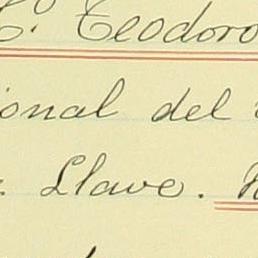 C.º Teodoro
ional del
Llave.